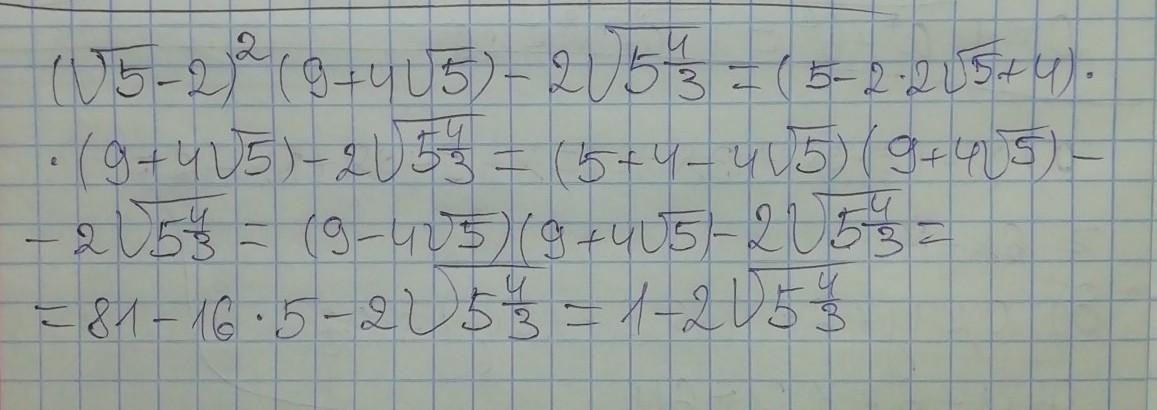 (√5-2)²(9+4√5)-2√(5 4/3)=(5-2·2√5+4)·
·(9+4√5)-2√(5 4/3)=(5+4-4√5)(9+4√5)-
-2√(5 4/3)=(9-4√5)(9+4√5)-2√(5 4/3)=
=81-16·5-2√(5 4/3)=1-2√(5 4/3)